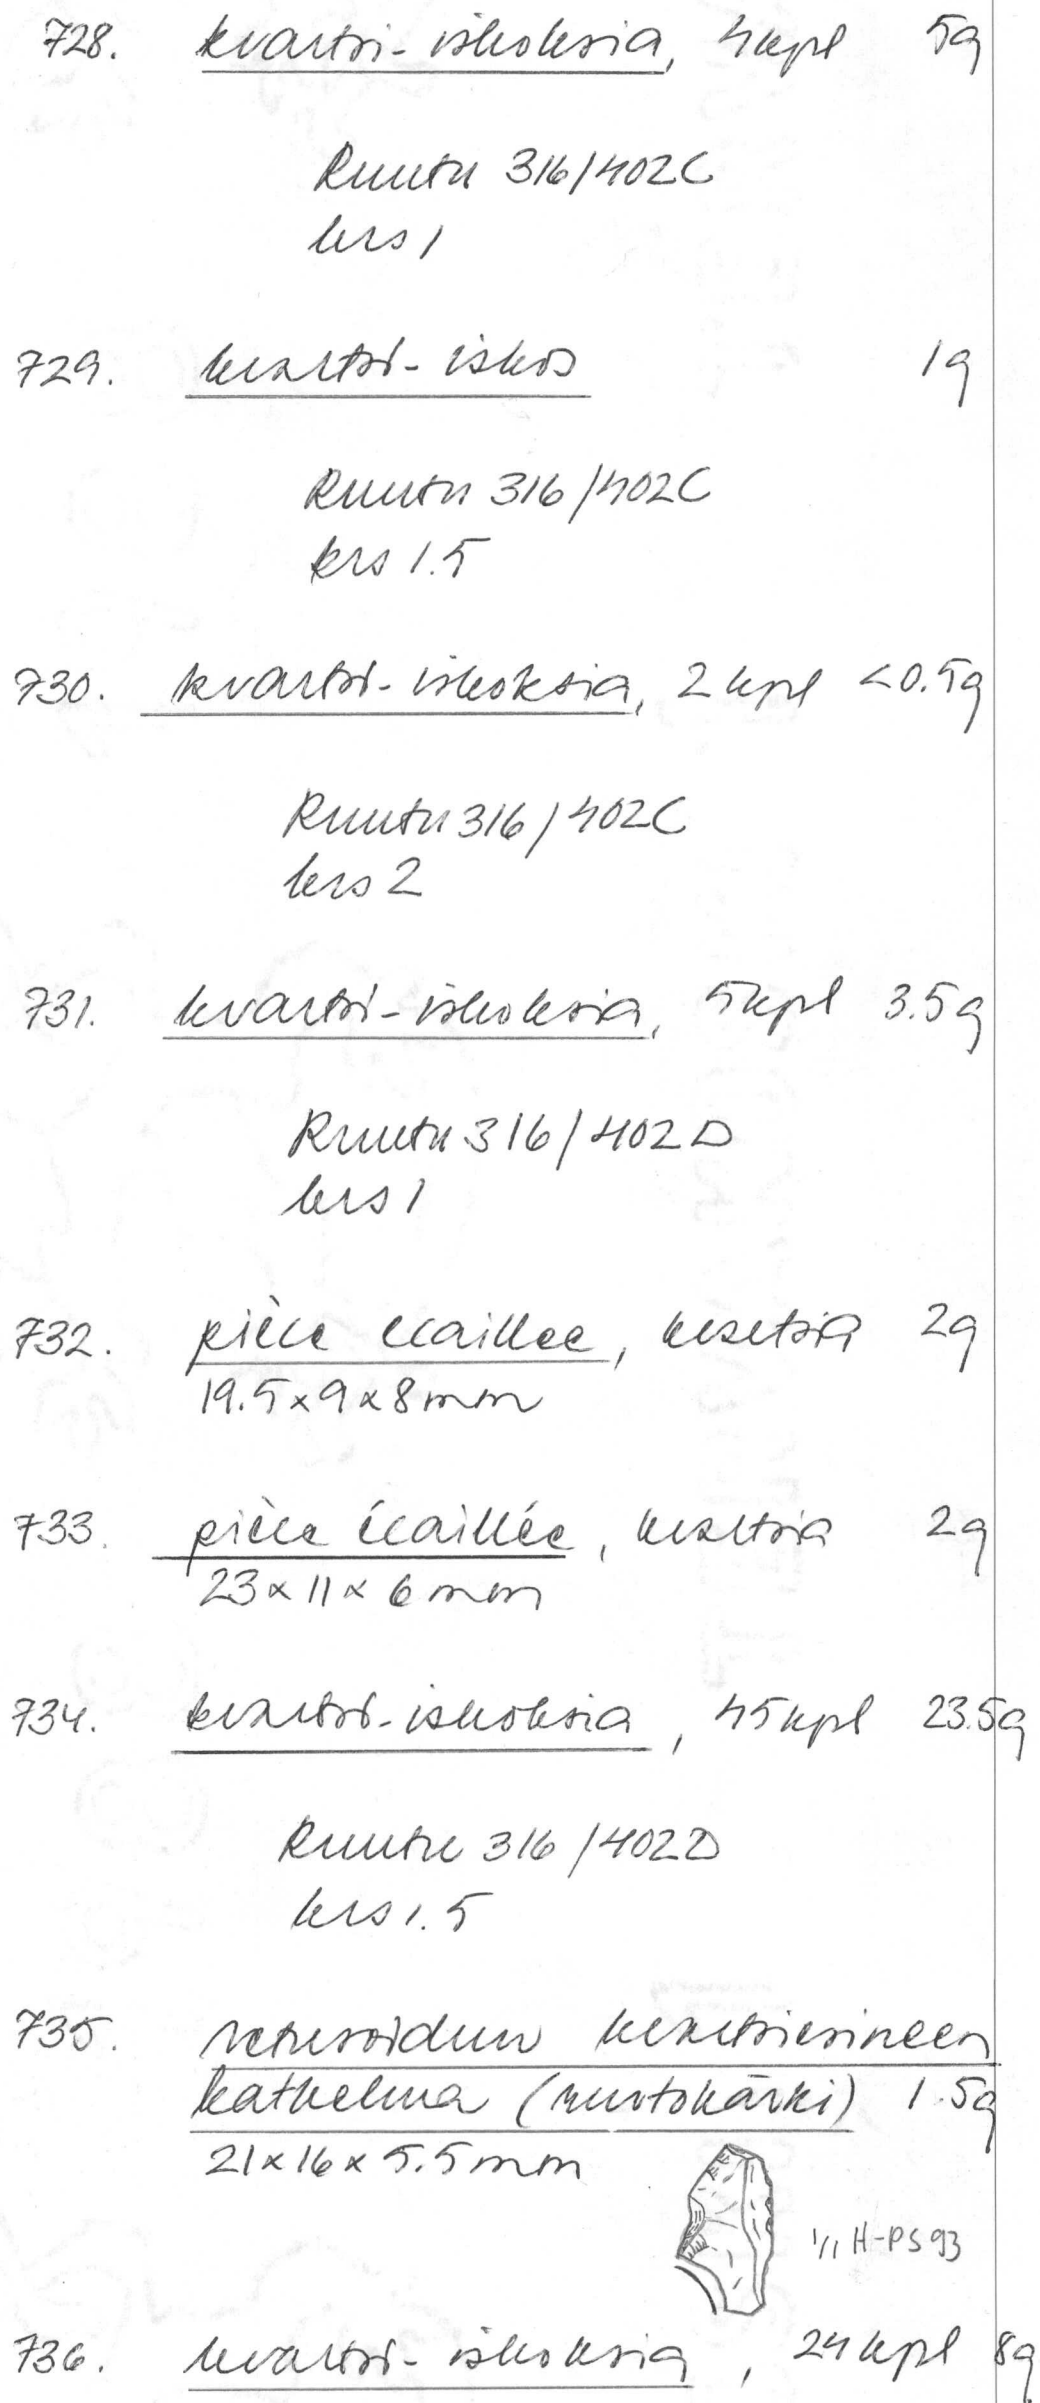 728. kvartsi-iskoksia, 4 kpl 5g
Ruutu 316/402C
krs 1
729. kvartsi-iskos 1g
Ruutu 316/402C
krs 1.5
730. kvartsi-iskoksia, 2 kpl <0.5g
Ruutu 316/402C
krs 2
731. kvartsi-iskoksia, 5 kpl 3.5g
Ruutu 316/402D
krs 1
732. pièce écaillée, kvartsia 2g
19.5 x 9 x 8 mm
733. pièce écaillée, kvartsia 2g
23 x 11 x 6 mm
734. kvartsi-iskoksia, 45 kpl 23.5g
Ruutu 316/402D
krs 1.5
735. retusoidun kvartsiesineen
katkelma (nuolokärki) 1.5g
21 x 16 x 5.5 mm
1/1 H-PS 93
736. kvartsi-iskoksia, 24 kpl 8g